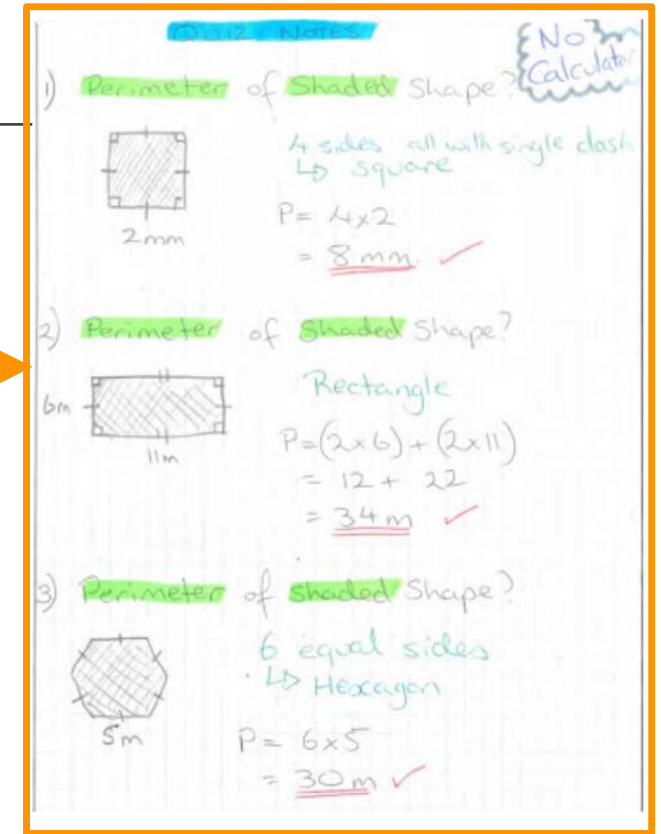 QUIZ NOTES
No Calculator
1) Perimeter of Shaded Shape?
4 sides all with single dash
↳ square
2mm
P= 4x2
= 8 mm ✓
2) Perimeter of Shaded Shape?
Rectangle
6m
11m
P=(2x6)+(2x11)
= 12 + 22
= 34 m ✓
3) Perimeter of shaded Shape?
6 equal sides
↳ Hexagon
5m
P= 6x5
= 30m ✓